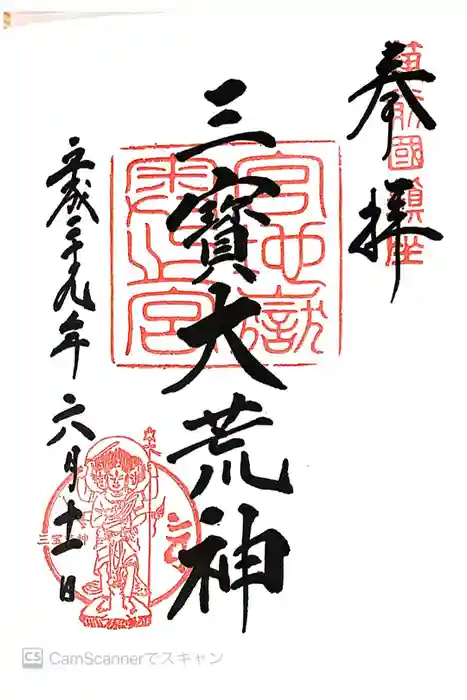 奉拝
前國鎮座
三寶大荒神
宮地嶽
奥之宮
平成二十九年六月十一日
CS CamScannerでスキャン